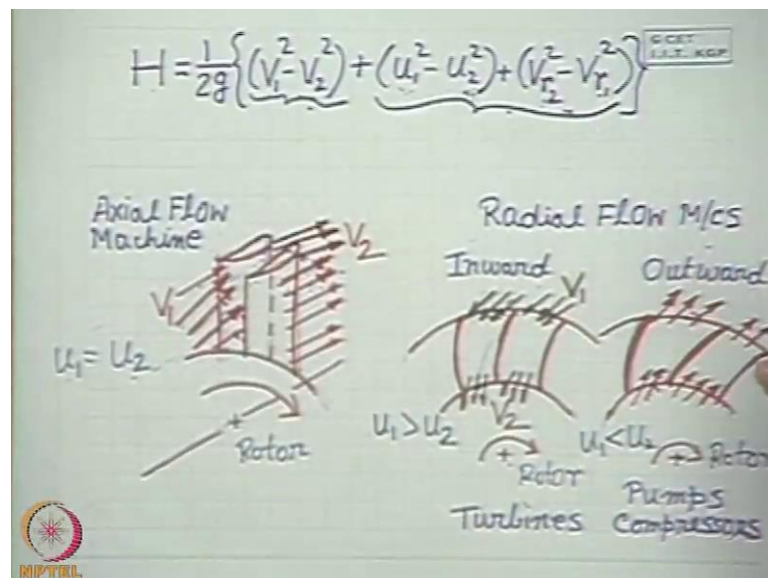 H = 1/2g {(V₁² - V₂²) + (U₁² - U₂²) + (Vr₂² - Vr₁²)}
I.I.T. KGP
Axial Flow
Machine
V₁
V₂
U₁ = U₂
Rotor
Radial Flow M/cs
Inward
Outward
V₁
V₂
U₁ > U₂
Rotor
Turbines
U₁ < U₂
Rotor
Pumps
Compressors
NPTEL